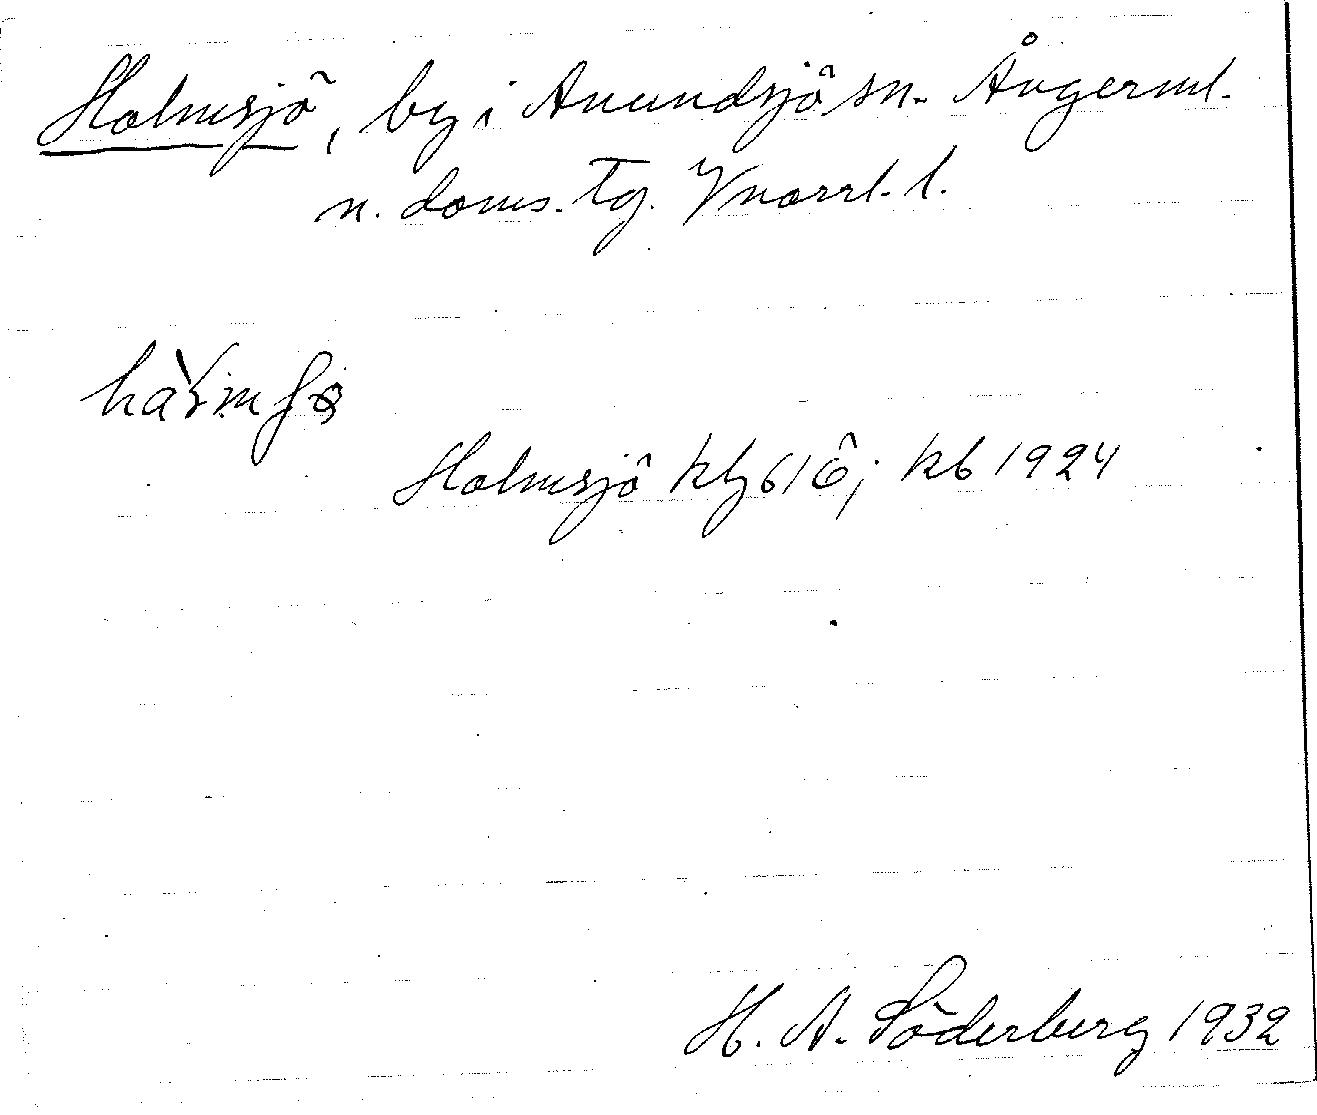 Holmsjö, by i Anundsjö sn. Ångerml.
n. doms. tg. Vnorrl. l.
Holmsjö 1924
H. A. Söderberg 1932